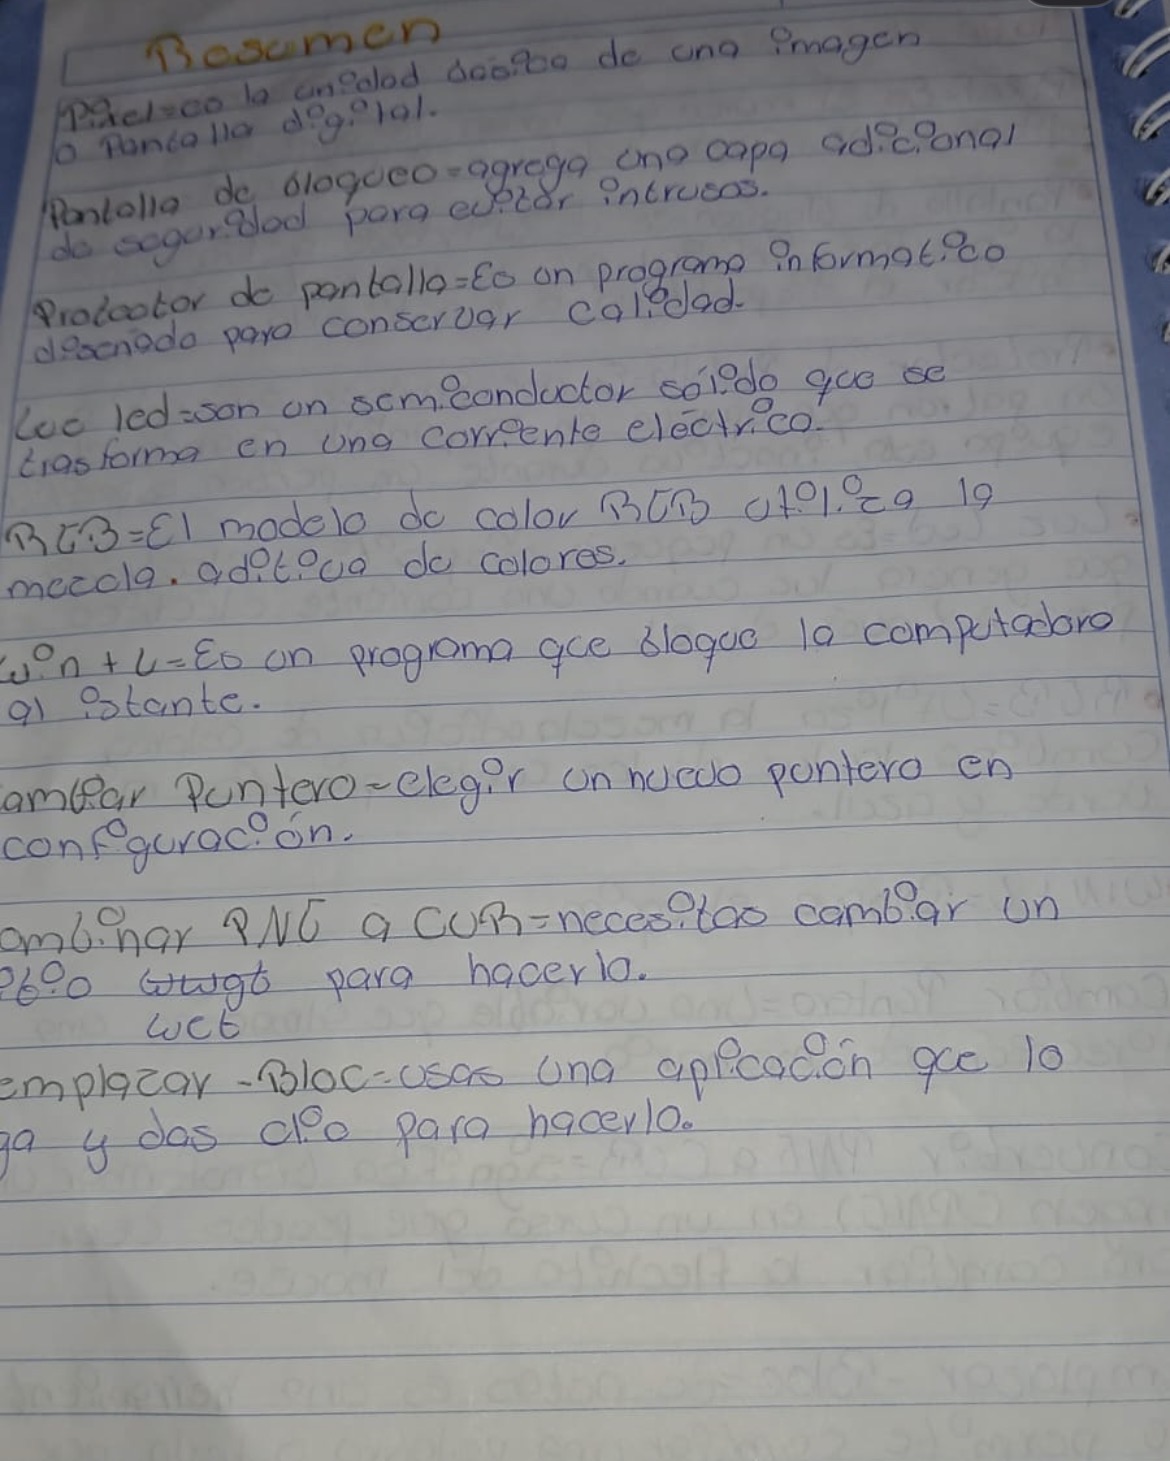 Resumen
Pixel=es la unidad basica de una imagen
o Pantalla digital.
Pantalla de bloqueo=agrega una capa adicional
de seguridad para evitar intrusos.
Protector de pantalla=Es un programa informatico
disenado para conservar calidad.
Luc led=son un semiconductor sólido que se
trasforma en una corriente eléctrico.
RGB=El modelo de color RGB utiliza la
mezcla. aditiva de colores.
win + L=Es un programa que bloque la computadora
al istante.
ambiar Puntero=elegir un nuevo puntero en
configuración.
ombinar PNG a CUR=necesitas cambiar un
para hacerlo.
web
emplazar -Bloc=usas una aplicación que lo
ga y das clic para hacerlo.